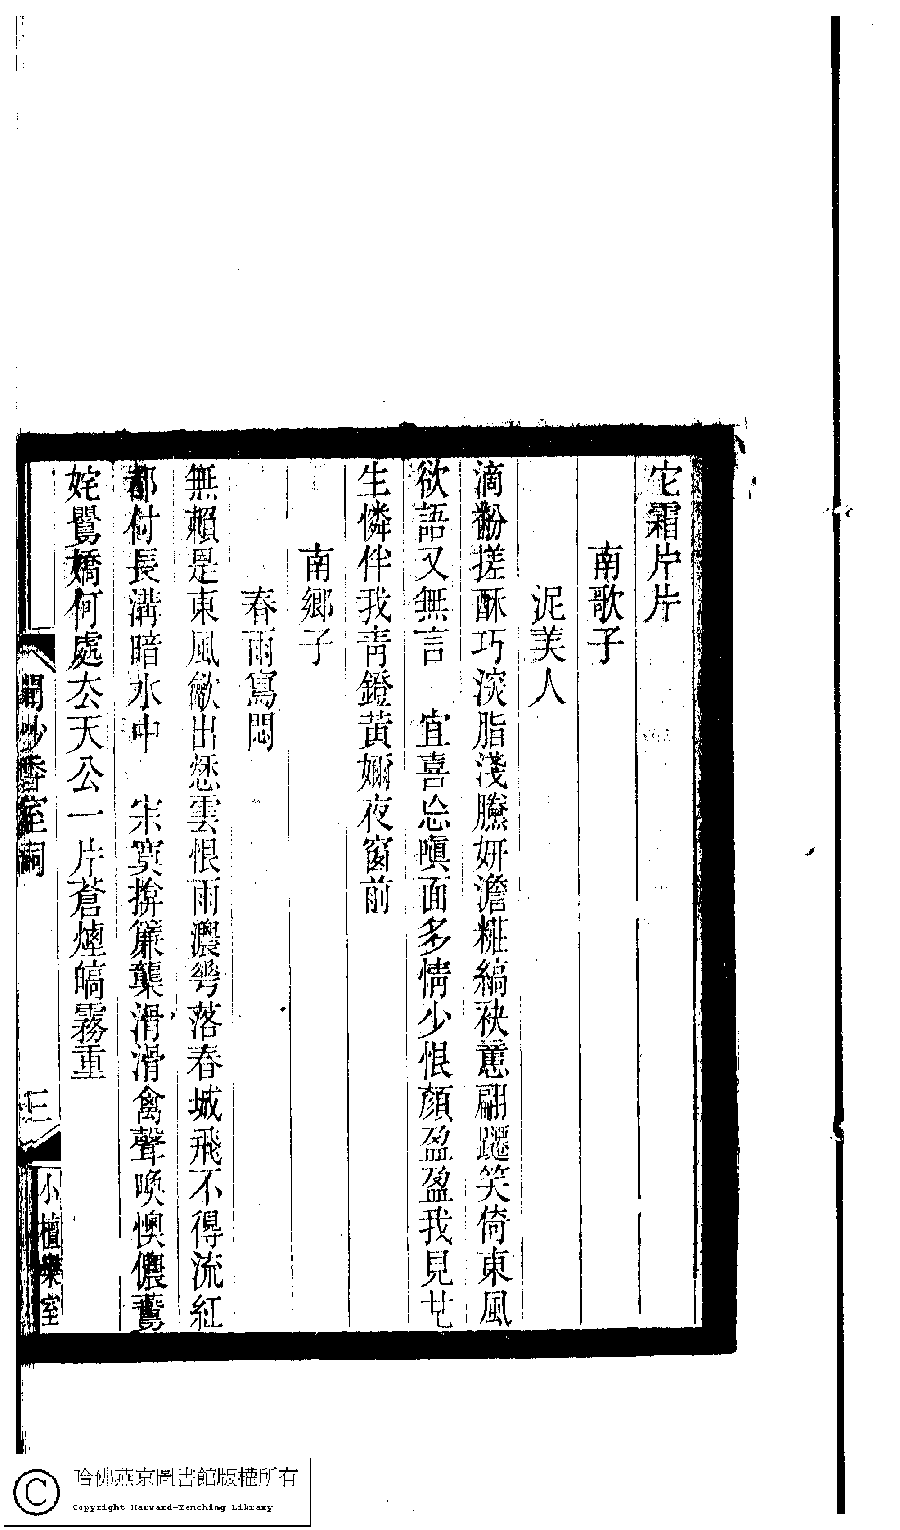 它霜片片
南歌子
泥美人
滴粉搓酥巧深脂淺臙妍澹糚縞袂蕙翩躚笑倚東風
欲語又無言　宜喜忘嗔面多情少恨顏盈盈我見也
生憐伴我青鐙黃嬭夜窗前
南鄉子
春雨寫悶
無賴是東風斂出愁雲恨雨濃𠌶落春城飛不得流紅
都付長溝暗水中　宋寞揜簾櫳滑滑禽聲喚懊儂鶯
姹鷰嬌何處厺天公一片蒼煙皜霧重
聞妙香室詞
三
小檀欒室
哈佛燕京圖書館版權所有
Copyright Harvard-Yenching Library